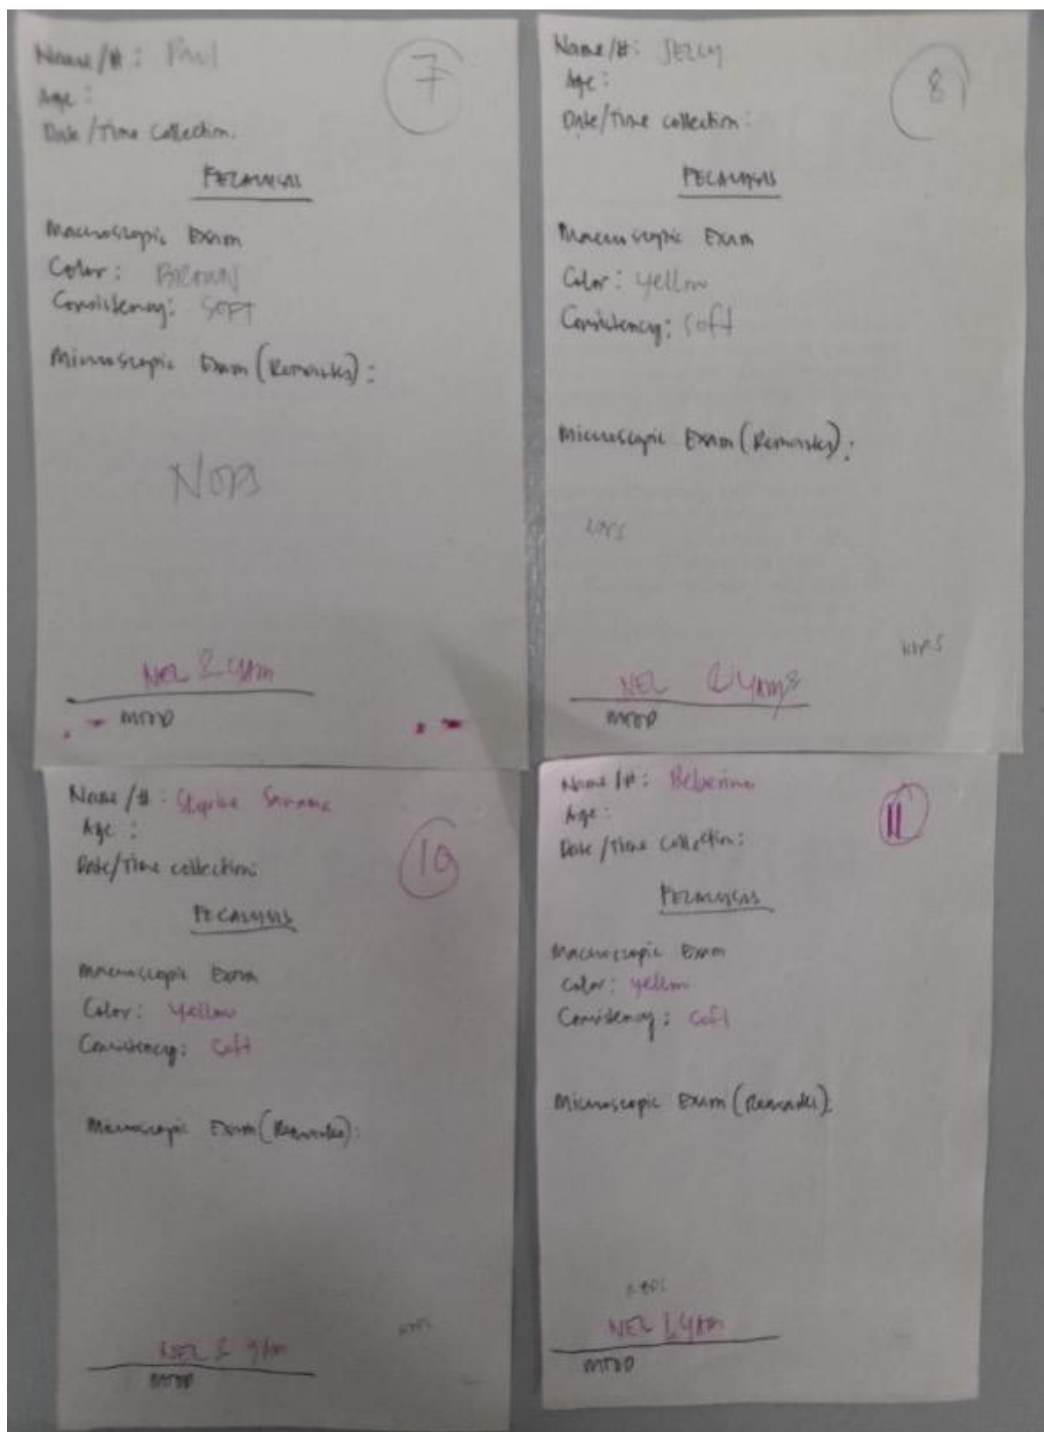 Name/#: Paul
7
Age:
Date/Time Collection:
FECALYSIS
Macroscopic Exam
Color: BROWN
Consistency: SOFT
Microscopic Exam (Remarks):
NOPS
NEL & YAM
MTOD
Name/#: JELLY
8
Age:
Date/Time collection:
FECALYSIS
Macroscopic Exam
Color: yellow
Consistency: soft
Microscopic Exam (Remarks):
NOPS
NOPS
NEL & YAM
MTOD
Name/#:
10
Age:
Date/Time collection:
FECALYSIS
Macroscopic Exam
Color: yellow
Consistency: soft
Microscopic Exam (Remarks):
NOPS
NEL & YAM
MTOD
Name/#:
11
Age:
Date/Time collection:
FECALYSIS
Macroscopic Exam
Color: yellow
Consistency: soft
Microscopic Exam (Remarks):
NOPS
NEL & YAM
MTOD